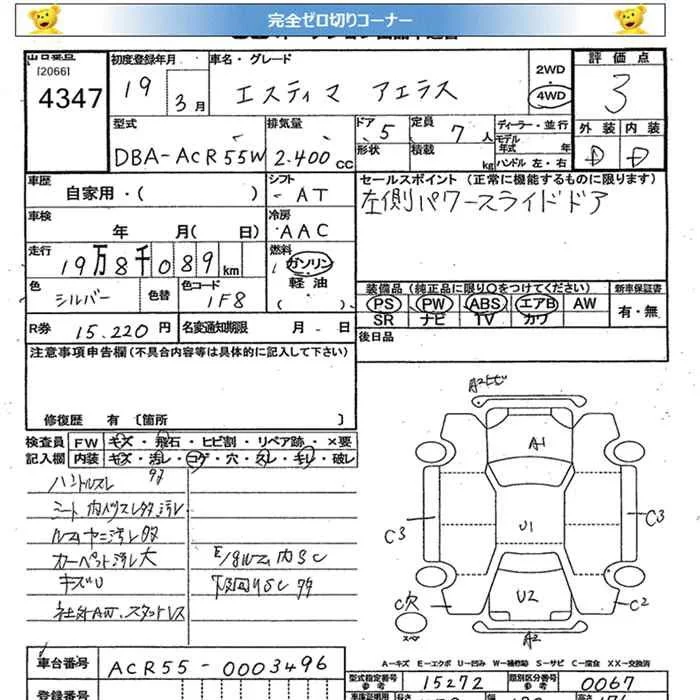 完全ゼロ切りコーナー
[2066]
4347
初度登録年月
19 3月
車名・グレード
エスティマ アエラス
2WD
4WD
評価点
3
型式
DBA-ACR55W
排気量
2.400 CC
ドア 5
形状
定員 7人
積載 kg
ディーラー・並行
モデル年式 年
ハンドル 左・右
外装 内装
D D
車歴
自家用・( )
シフト
AT
セールスポイント (正常に機能するものに限ります)
左側パワースライドドア
車検
年 月( 日)
冷房
AAC
走行
19万8千089km
燃料
ガソリン
軽油
( )
色
シルバー
色替
色コード
1F8
装備品 (純正品に限り○をつけてください)
新車保証書
PS PW ABS エアB AW
有・無
SR ナビ TV カワ
R券 15.220円
名変通知期限 月 日
後日品
注意事項申告欄 (不具合内容等は具体的に記入して下さい)
修復歴 有 〔箇所 〕
検査員
記入欄
FW キズ・飛石・ヒビ割・リペア跡・×要
内装 キズ・汚レ・コゲ・穴・スレ・毛リ・破レ
ハンドルスレ
ルームヤニ汚レ
カーペット汚レ大
キズU
社外AW.スタットレス
A1
U1
C3
C3
U2
C欠
C2
A2
スペア
A-キズ E-エクボ U-凹み W-補修跡 S-サビ C-腐食 XX-交換済
車台番号
ACR55-0003496
登録番号
型式指定番号
参考
15272
類別区分番号
参考
0067